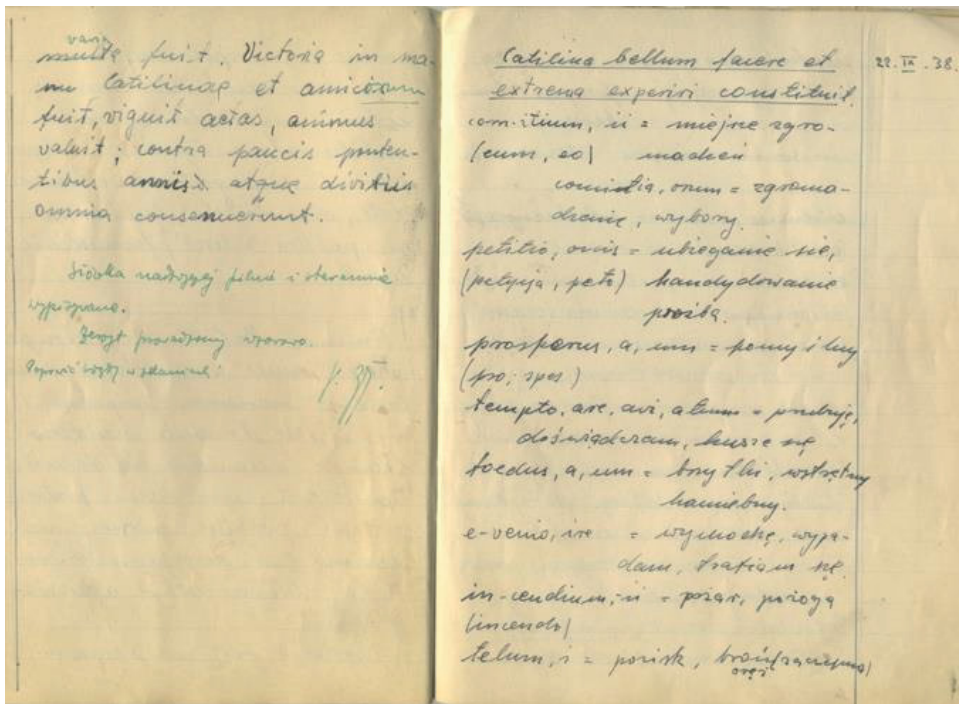 vana
multa fuit. Victoria in ma-
nu Catilinae et amicorum
fuit, viguit aetas, animus
valuit; contra paucis poten-
tibus annis atque divitiis
omnia consenuerunt.
Słówka nadzwyczaj pilnie i starannie
wypisywane.
Zeszyt prowadzony wzorowo.
Poprawić błędy w zdaniach!
Catilina bellum facere et
22. IX. 38.
extrema experiri constituit.
com-itium, ii = miejsce zgro-
(cum, eo) madzeń
comitia, orum = zgroma-
dzenie, wybory.
petitio, onis = ubieganie się,
(petycja, peto) kandydowanie
prośba.
prosperus, a, um = pomyślny
(pro; spes)
tempto, are, avi, atum = próbuję,
doświadczam, kuszę się
foedus, a, um = brzydki, wstrętny
haniebny.
e-venio, ire = wychodzę, wypa-
dam, trafiam się.
in-cendium, ii = pożar, pożoga
(incendo)
telum, i = pocisk, broń (zaczepna)
oręż